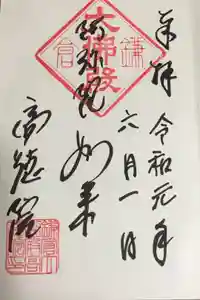 奉拝
令和元年
六月一日
鎌倉
大佛殿
阿弥陀如来
高徳院